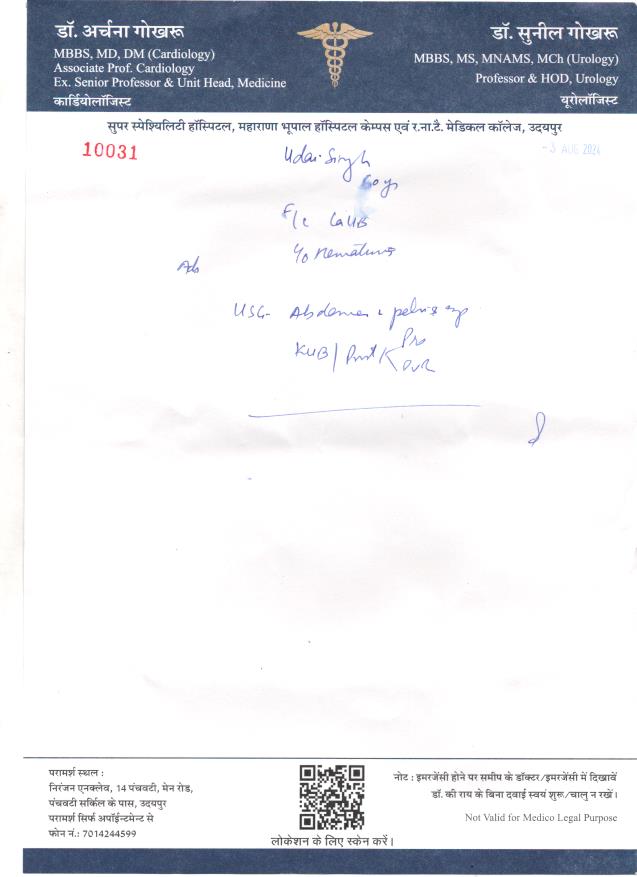 डॉ. अर्चना गोखरू
MBBS, MD, DM (Cardiology)
Associate Prof. Cardiology
Ex. Senior Professor & Unit Head, Medicine
कार्डियोलॉजिस्ट
डॉ. सुनील गोखरू
MBBS, MS, MNAMS, MCh (Urology)
Professor & HOD, Urology
यूरोलॉजिस्ट
सुपर स्पेश्यिलिटी हॉस्पिटल, महाराणा भूपाल हॉस्पिटल केम्पस एवं र.ना.टै. मेडिकल कॉलेज, उदयपुर
10031
-3 AUG 2024
Udai Singh
60 yr
F/c CaUB
Adv
USG- Abdomen & pelvis
KUB/ Prost
PVR
परामर्श स्थल :
निरंजन एनक्लेव, 14 पंचवटी, मेन रोड,
पंचवटी सर्किल के पास, उदयपुर
परामर्श सिर्फ अपॉईन्टमेन्ट से
फोन नं.: 7014244599
लोकेशन के लिए स्केन करें।
नोट : इमरजेंसी होने पर समीप के डॉक्टर/इमरजेंसी में दिखावें
डॉ. की राय के बिना दवाई स्वयं शुरू/चालु न रखें।
Not Valid for Medico Legal Purpose